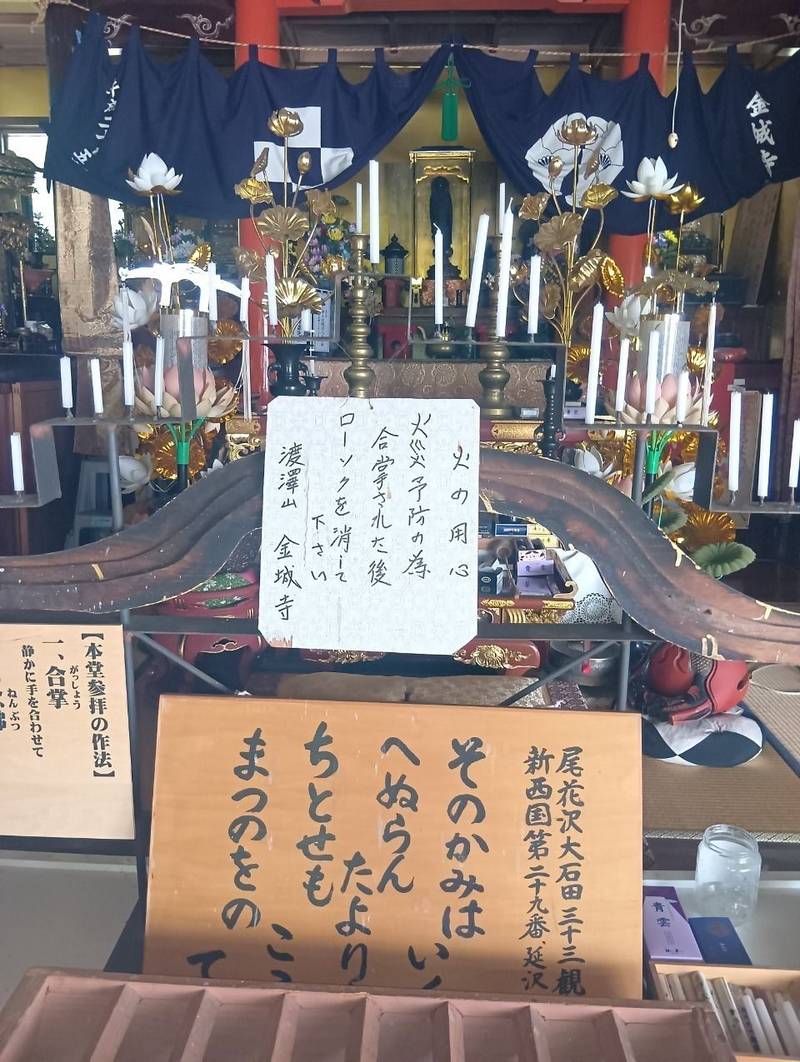 金城寺
火の用心
火災予防の為
合掌された後
ローソクを消して
下さい
渡澤山 金城寺
【本堂参拝の作法】
一、合掌
がっしょう
静かに手を合わせて
ねんぶつ
尾花沢大石田三十三観
新西国第二十九番、延沢
そのかみは
いく
へぬらん
たより
ちとせも
こ
まつのをの
て
青雲